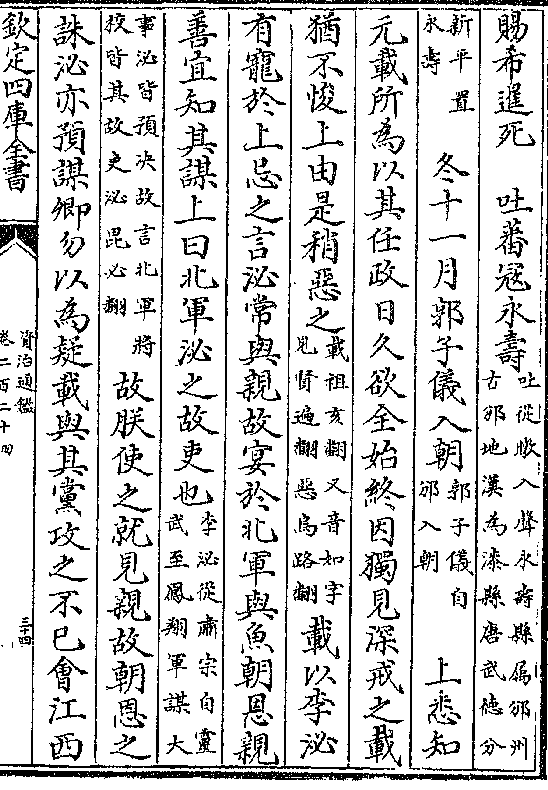 賜希暹死　吐蕃寇永壽吐從暾入聲永壽縣屬邠州
古邠地漢為漆縣唐武德分
新平置
永壽　冬十一月郭子儀入朝郭子儀自
邠入朝　上悉知
元載所為以其任政日久欲全始終因獨見深戒之載
猶不悛上由是稍惡之載祖亥翻又音如字
見賢遍翻惡烏路翻載以李泌
有寵於上忌之言泌常與親故宴於北軍與魚朝恩親
善宜知其謀上曰北軍泌之故吏也李泌從肅宗自靈
武至鳳翔軍謀大
事泌皆預决故言北軍將
校皆其故吏泌毘必翻故朕使之就見親故朝恩之
誅泌亦預謀卿勿以為疑載與其黨攻之不已會江西
欽定四庫全書
資治通鑑
卷二百二十四
三十四